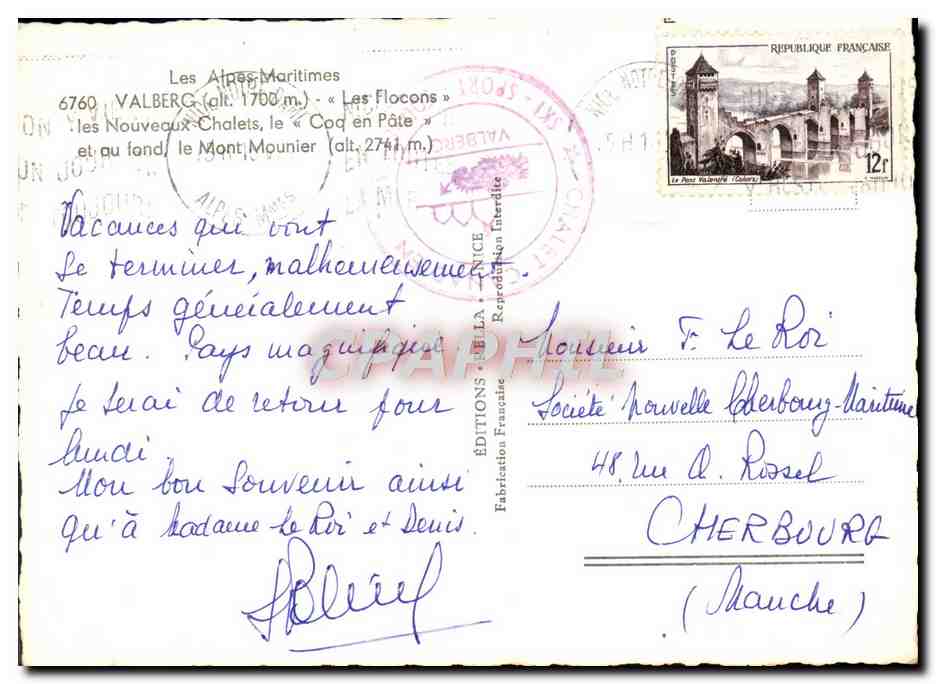 Les Alpes-Maritimes
6760 VALBERG (alt. 1700 m.) - « Les Flocons »
les Nouveaux Chalets, le « Coq en Pâte »
et au fond, le Mont Mounier (alt. 2741 m.)
Vacances qui vont
se terminer, malheureusement.
Temps généralement
beau. Pays magnifique
Je serai de retour pour
lundi.
Mon bon souvenir ainsi
qu'à Madame Le Roi et Denis.
ÉDITIONS RELLA - NICE
Fabrication Française Reproduction Interdite
SKI - SPORT
CHALET
VALBERG
ALPES MMES
RÉPUBLIQUE FRANÇAISE
POSTES
Le Pont Valentré (Cahors)
12F
CPAPHIL
Monsieur F. Le Roi
Société Nouvelle Cherbourg-Maritime
48, rue A. Rossel
CHERBOURG
(Manche)